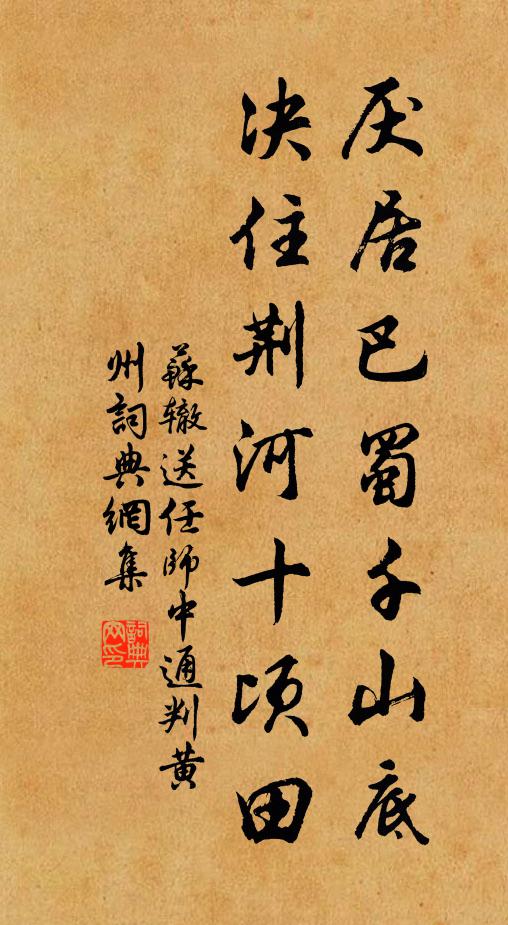 厌居巴蜀千山底
决住荆河十顷田
蘇辙送任師中通判黄
州詞典網集
詞典
网印